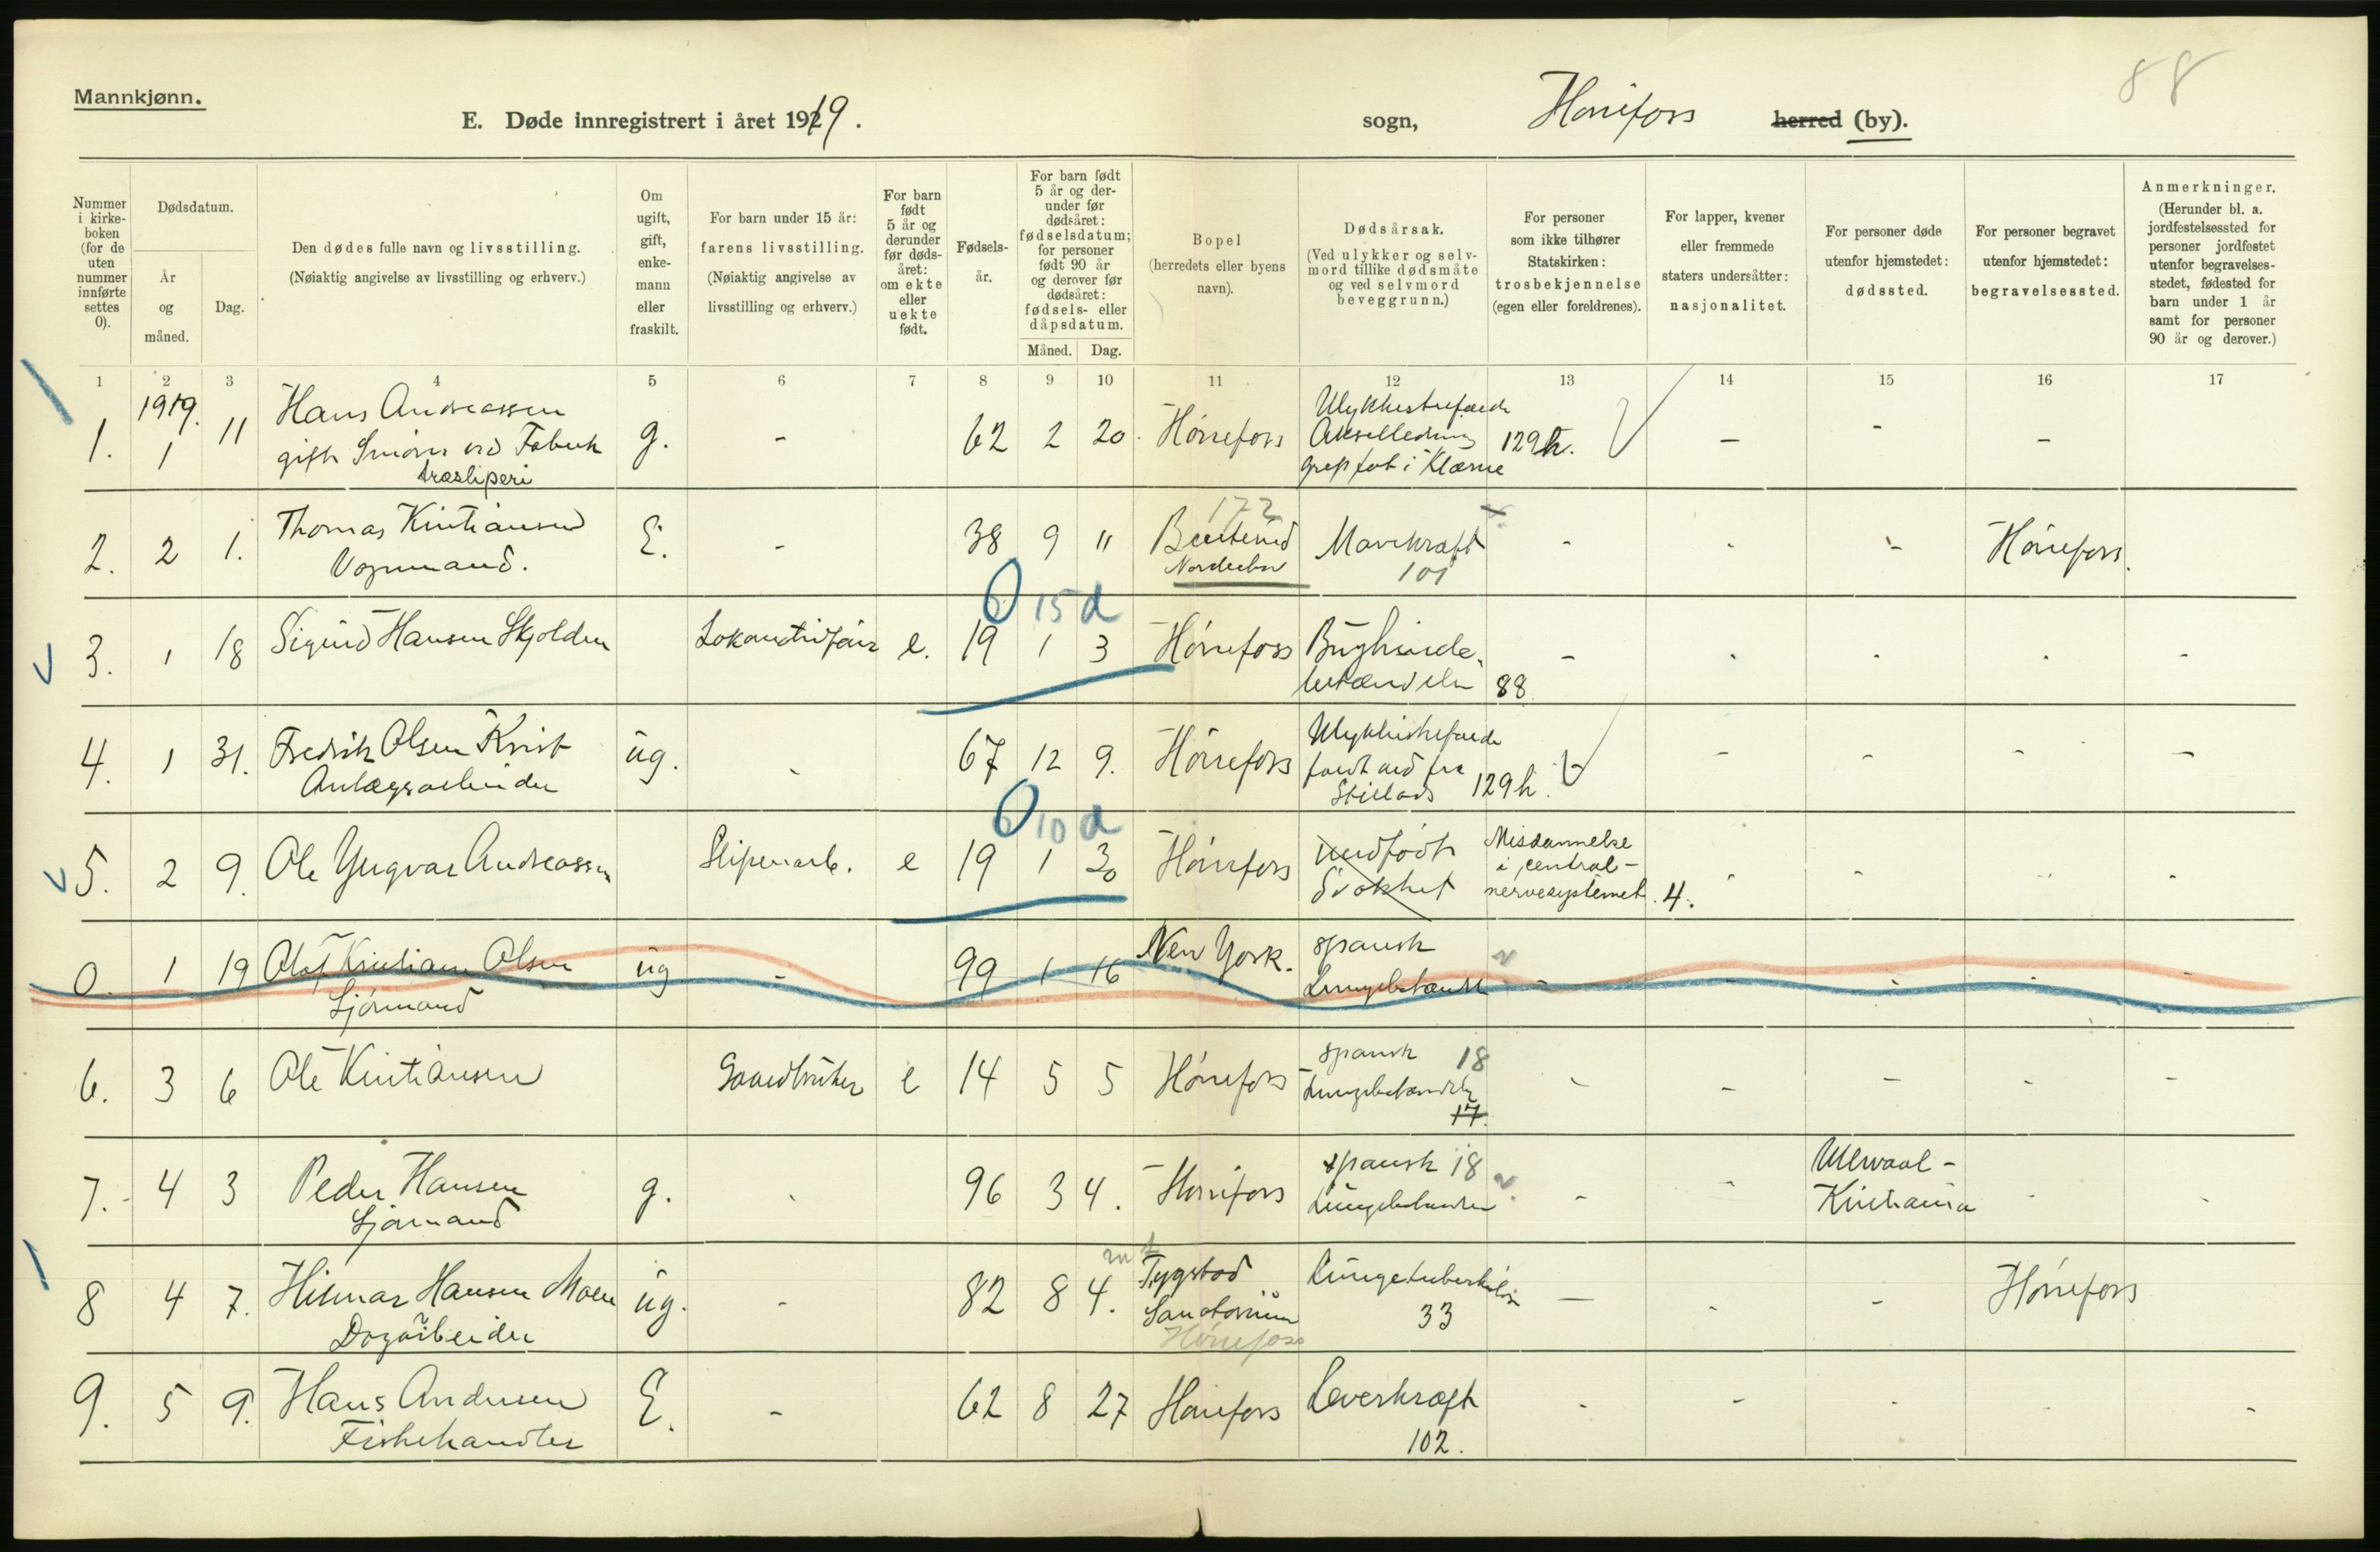 Mannkjønn.
88
E. Døde innregistrert i året 1919.
sogn, Hønefoss herred (by).
Nummer i kirkeboken (for de uten nummer innførte settes 0).
Dødsdatum.
År og måned.
Dag.
Den dødes fulle navn og livsstilling.
(Nøiaktig angivelse av livsstilling og erhverv.)
Om ugift, gift, enkemann eller fraskilt.
For barn under 15 år: farens livsstilling.
(Nøiaktig angivelse av livsstilling og erhverv.)
For barn født 5 år og derunder før dødsåret: om ekte eller uekte født.
Fødselsår.
For barn født 5 år og derunder før dødsåret: fødselsdatum; for personer født 90 år og derover før dødsåret: fødsels- eller dåpsdatum.
Måned. Dag.
Bopel (herredets eller byens navn).
Dødsårsak.
(Ved ulykker og selvmord tillike dødsmåte og ved selvmord beveggrunn.)
For personer som ikke tilhører Statskirken: trosbekjennelse (egen eller foreldrenes).
For lapper, kvener eller fremmede staters undersåtter: nasjonalitet.
For personer døde utenfor hjemstedet: dødssted.
For personer begravet utenfor hjemstedet: begravelsessted.
Anmerkninger.
(Herunder bl. a. jordfestelsessted for personer jordfestet utenfor begravelsesstedet, fødested for barn under 1 år samt for personer 90 år og derover.)
1 2 3 4 5 6 7 8 9 10 11 12 13 14 15 16 17
1919.
1. 1 11 Hans Andreassen g. - 62 2 20. Hønefoss Ulykkestilfælde 129h. - -
gift ved Fabrik
træsliperi
Akselledning
grep fat i Klærne
2. 2 1. Thomas Kristiansen E. - 38 9 11 172 Mavekræft - - - Hønefoss.
Vognmand.
Norderhov
101
0 15 d
3. 1 18 Sigurd Hansen Skjolden e. 19 1 3 Hønefoss Bughinde- - - - - -
betændelse 88
4. 1 31. Fredrik Olsen Kvist ug. - 67 12 9. Hønefoss Ulykkestilfælde - - - -
Anlægsarbeider
faldt ned fra
Stillads 129h.
0 10 d
5. 2 9. Ole Yngvar Andreassen Sliperiarb. e 19 1 30 Hønefoss medfødt Misdannelse - - - -
svakhet i central-
nervesystemet. 4.
0. 1 19 Olaf Kristian Olsen ug - 99 1 16 New York. spansk - - - - -
Sjømand
Lungebetændelse
6. 3 6 Ole Kristiansen Gaardbruker e 14 5 5 Hønefoss spansk 18 - - - - -
Lungebetændelse
17.
7. 4 3 Peder Hansen g. - 96 3 4. Hønefoss spansk 18 - - Ullevaal - - -
Sjømand
Lungebetændelse
Kristiania
8 4 7. Hilmar Hansen Moen ug. - 82 8 4. Lungetuberkulose - - - Hønefoss
Dagarbeider
Sanatorium
33
Hønefoss
9. 5 9. Hans Andersen E. - 62 8 27 Hønefoss Leverkræft - - - - -
Fiskehandler
102.